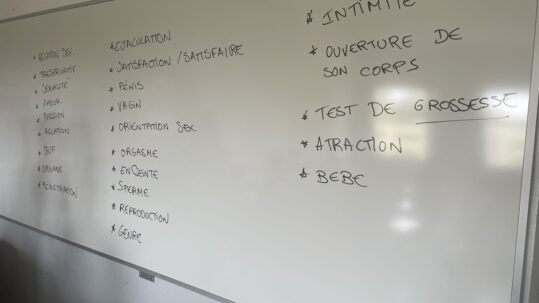 * RELATION SEX.
* PRESERVATIF
* SEXUALITÉ
* AMOUR
* PASSION
* RELATION
* ORGASME
* PENETRATION
* EJACULATION
* SATISFACTION / SATISFAIRE
* PENIS
* VAGIN
* ORIENTATION SEX.
* ORGASME
* ENCEINTE
* SPERME
* REPRODUCTION
* GENRE
* INTIMITÉ
* OUVERTURE DE
SON CORPS
* TEST DE GROSSESSE
* ATRACTION
* BEBE